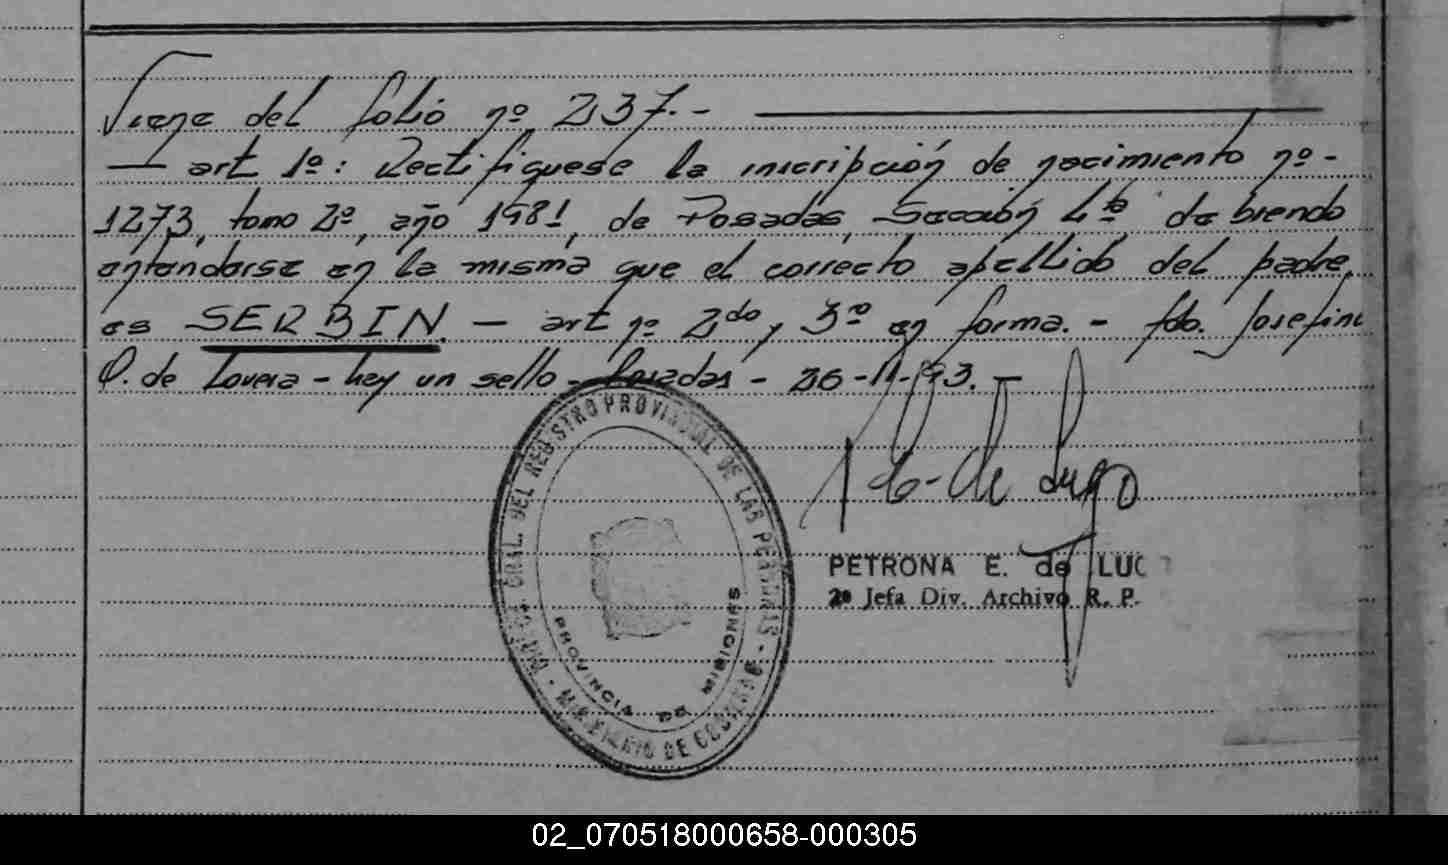 Viene del folio nº 237.-
— art 1º: Rectifiquese la inscripción de nacimiento nº -
1273, tomo 2º, año 1981, de Posadas, Sección 4ta debiendo
entenderse en la misma que el correcto apellido del padre,
es SERBIN. — art nº 2do, 3º en forma. - fdo. Josefina
Q. de Lovera - hay un sello - Posadas - 26-11-93. —
DIR. GRAL. DEL REGISTRO PROVINCIAL DE LAS PERSONAS - MINISTERIO DE GOBIERNO -
PROVINCIA DE MISIONES
de Lugo
PETRONA E. de LUGO
2º Jefa Div. Archivo R. P.
02_070518000658-000305